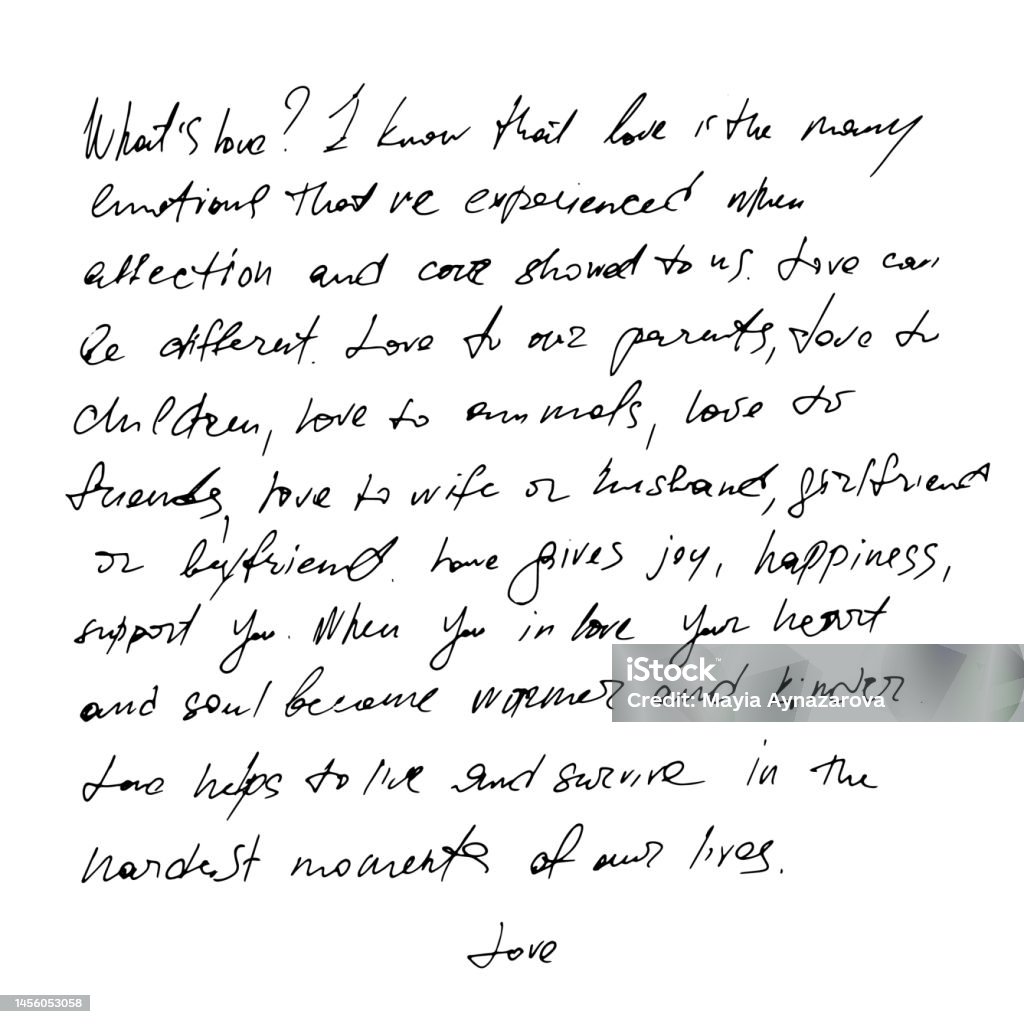 What's love? I know that love is the many
emotions that've experienced when
affection and care showed to us. Love can
be different. Love to our parents, love to
children, love to animals, love to
friends, love to wife or husband, girlfriend
or boyfriend. Love gives joy, happiness,
support you. When you in love your heart
and soul become warmer and kinder
Love helps to live and survive in the
hardest moments of our lives.
Love
iStock™
Credit: Mayia Aynazarova
1456053058